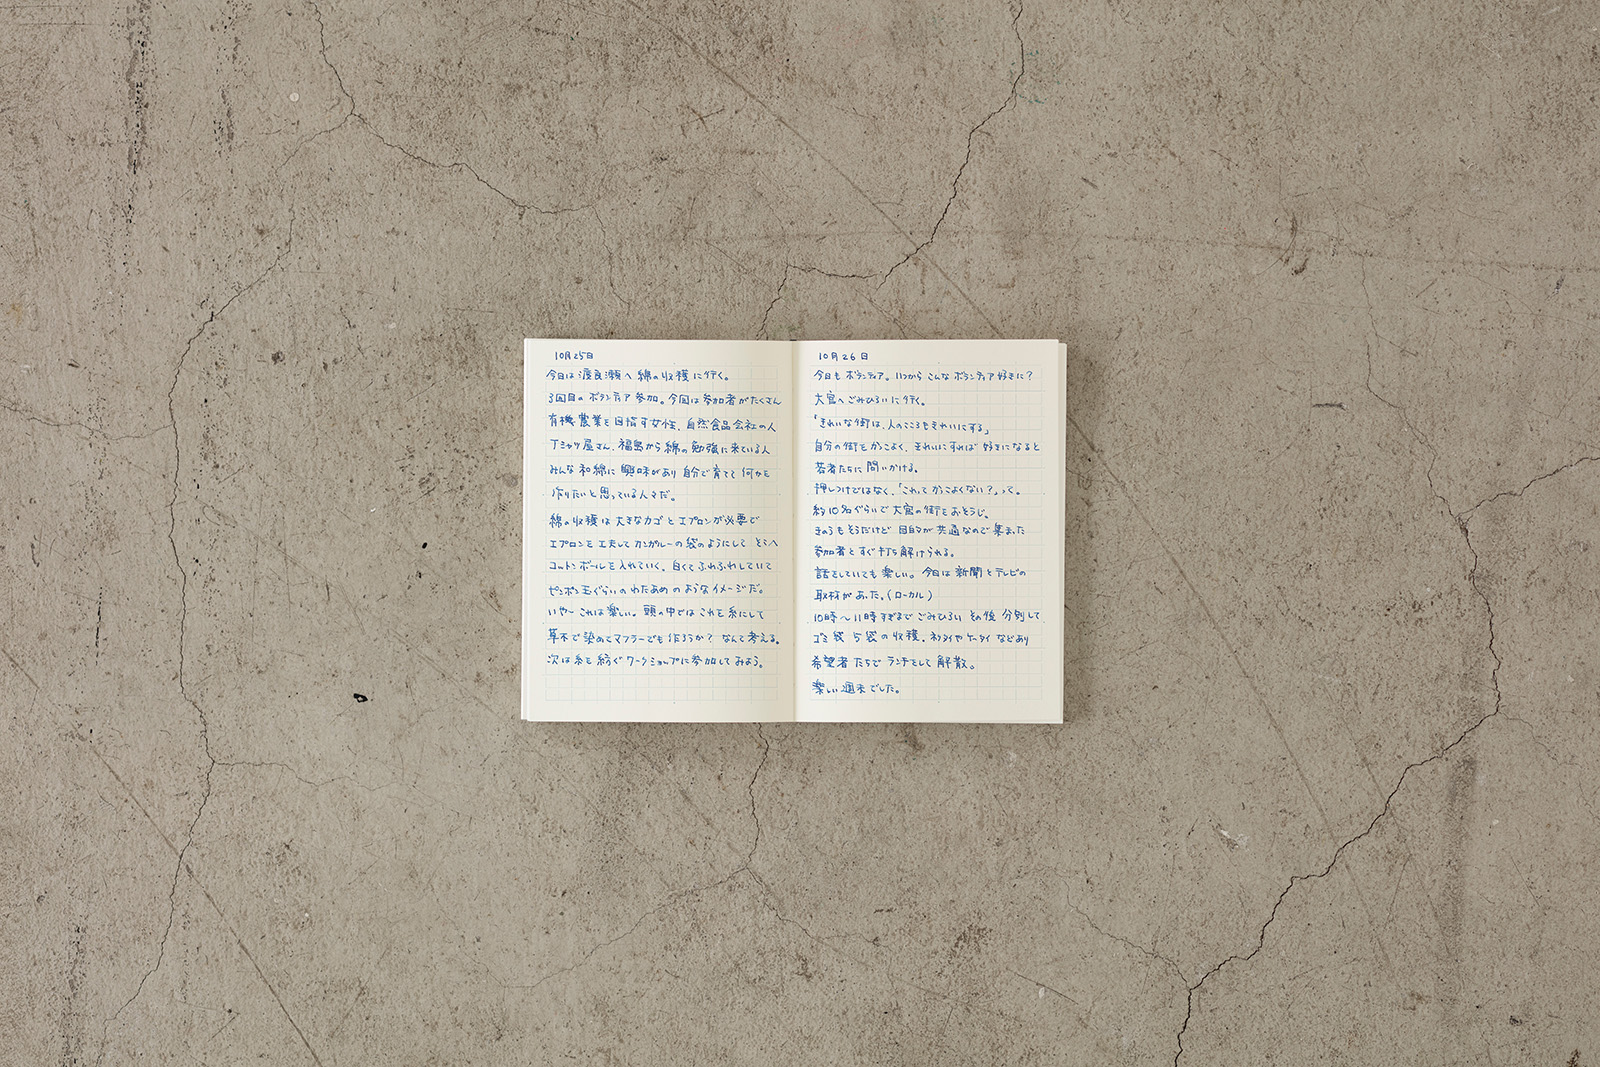 10月25日
今日は渡良瀬へ綿の収穫に行く。
3回目のボランティア参加。今回は参加者がたくさん
有機農業を目指す女性、自然食品会社の人
Tシャツ屋さん、福島から綿の勉強に来ている人
みんな和綿に興味があり自分で育てて何かを
作りたいと思っている人々だ。
綿の収穫は大きなカゴとエプロンが必要で
エプロンを工夫してカンガルーの袋のようにしてそこへ
コットンボールを入れていく。白くてふわふわしていて
ピンポン玉ぐらいのわたあめのようなイメージだ。
いやーこれは楽しい。頭の中ではこれを糸にして
草木で染めてマフラーでも作ろうか?なんて考える。
次は糸を紡ぐワークショップに参加してみよう。
10月26日
今日もボランティア。いつからこんなボランティア好きに?
大宮へごみひろいに行く。
「きれいな街は、人のこころもきれいにする」
自分の街をかっこよく、きれいにすれば好きになると
若者たちに問いかける。
押しつけではなく、「これってかっこよくない?」って。
約10名ぐらいで大宮の街をおそうじ。
きのうもそうだけど目的が共通なので集まった
参加者とすぐ打ち解けられる。
話をしていても楽しい。今日は新聞とテレビの
取材があった。(ローカル)
10時〜11時すぎまでごみひろいその後分別して
ゴミ袋5袋の収穫。ネクタイやケータイなどあり
希望者たちでランチをして解散。
楽しい週末でした。